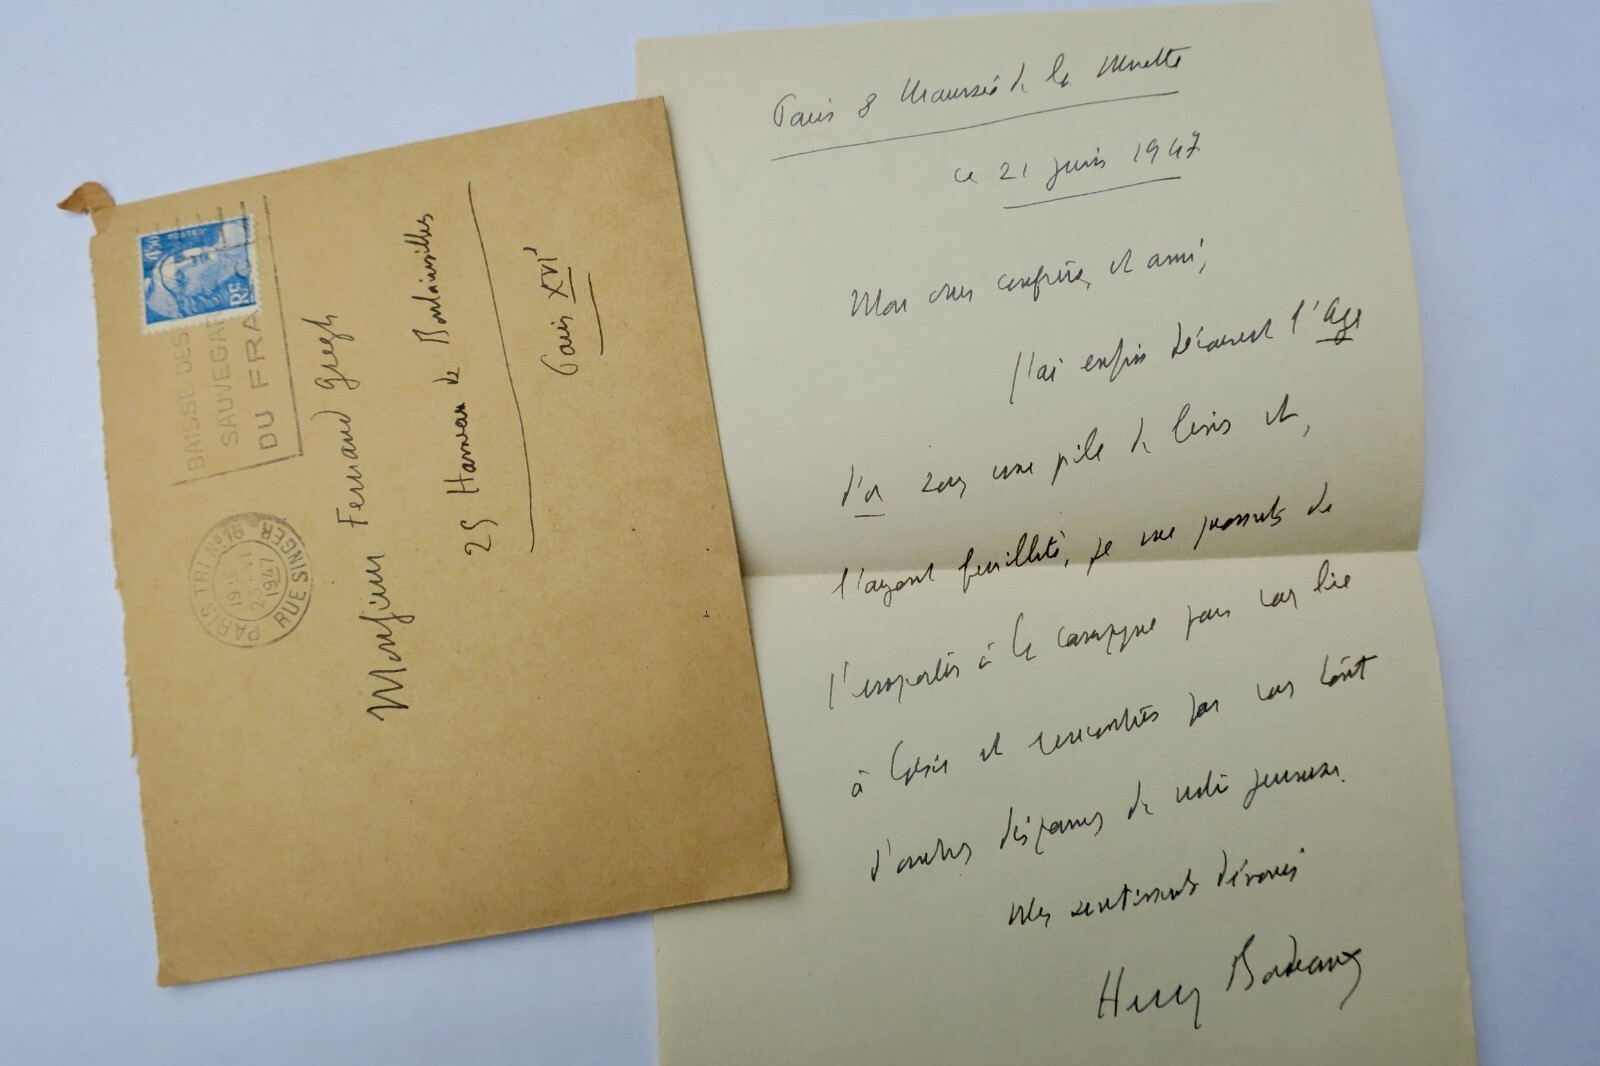 4f50
POSTES
RF
BAISSE DES
SAUVEGAR
DU FRA
PARIS TRI N° 16
19H
23 VI
1947
RUE SINGER
Monsieur Fernand Gregh
25 Hameau de Boulainvilliers
Paris XVIe
Paris 8 Chaussée de la Muette
ce 21 juin 1947
Mon cher confrère et ami,
J'ai enfin découvert l'Age
d'or sous une pile de livres et,
l'ayant feuilleté, je me promets de
l'emporter à la campagne pour vous lire
à loisir et rencontrer par vous tout
d'autres disparus de notre jeunesse.
Mes sentiments dévoués
Henry Bordeaux